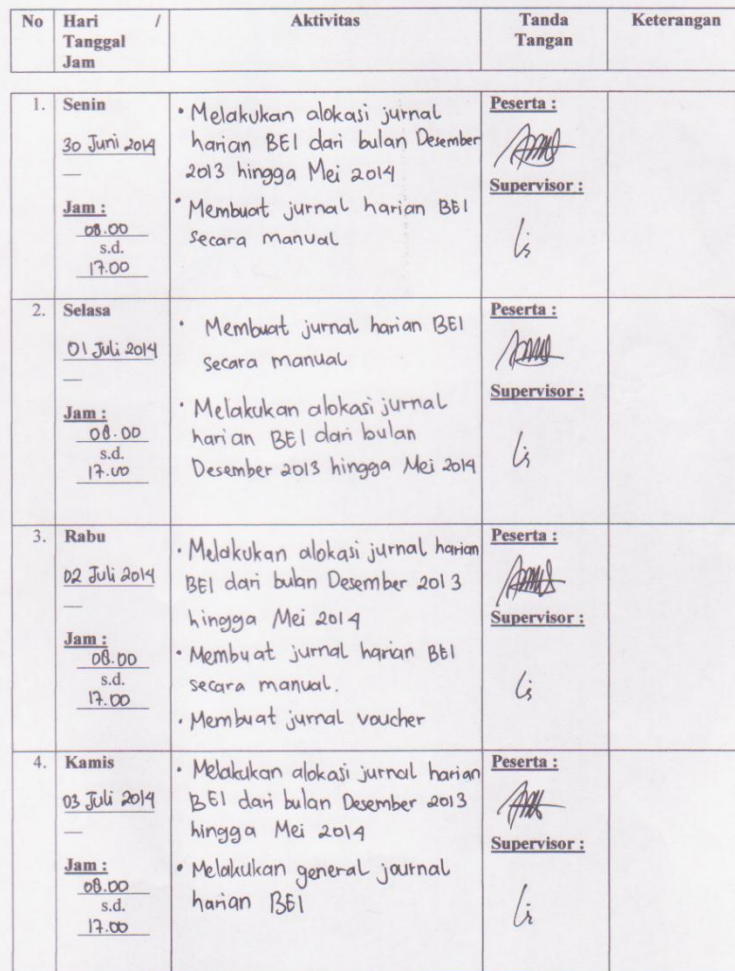 No Hari / Tanggal Jam Aktivitas Tanda Tangan Keterangan
1. Senin
30 Juni 2014
Jam :
08.00
s.d.
17.00
• Melakukan alokasi jurnal
harian BEI dari bulan Desember
2013 hingga Mei 2014
• Membuat jurnal harian BEI
secara manual
Peserta :
Supervisor :
2. Selasa
01 Juli 2014
Jam :
08.00
s.d.
17.00
• Membuat jurnal harian BEI
secara manual
• Melakukan alokasi jurnal
harian BEI dari bulan
Desember 2013 hingga Mei 2014
Peserta :
Supervisor :
3. Rabu
02 Juli 2014
Jam :
08.00
s.d.
17.00
• Melakukan alokasi jurnal harian
BEI dari bulan Desember 2013
hingga Mei 2014
• Membuat jurnal harian BEI
secara manual.
• Membuat jurnal voucher
Peserta :
Supervisor :
4. Kamis
03 Juli 2014
Jam :
08.00
s.d.
17.00
• Melakukan alokasi jurnal harian
BEI dari bulan Desember 2013
hingga Mei 2014
• Melakukan general journal
harian BEI
Peserta :
Supervisor :